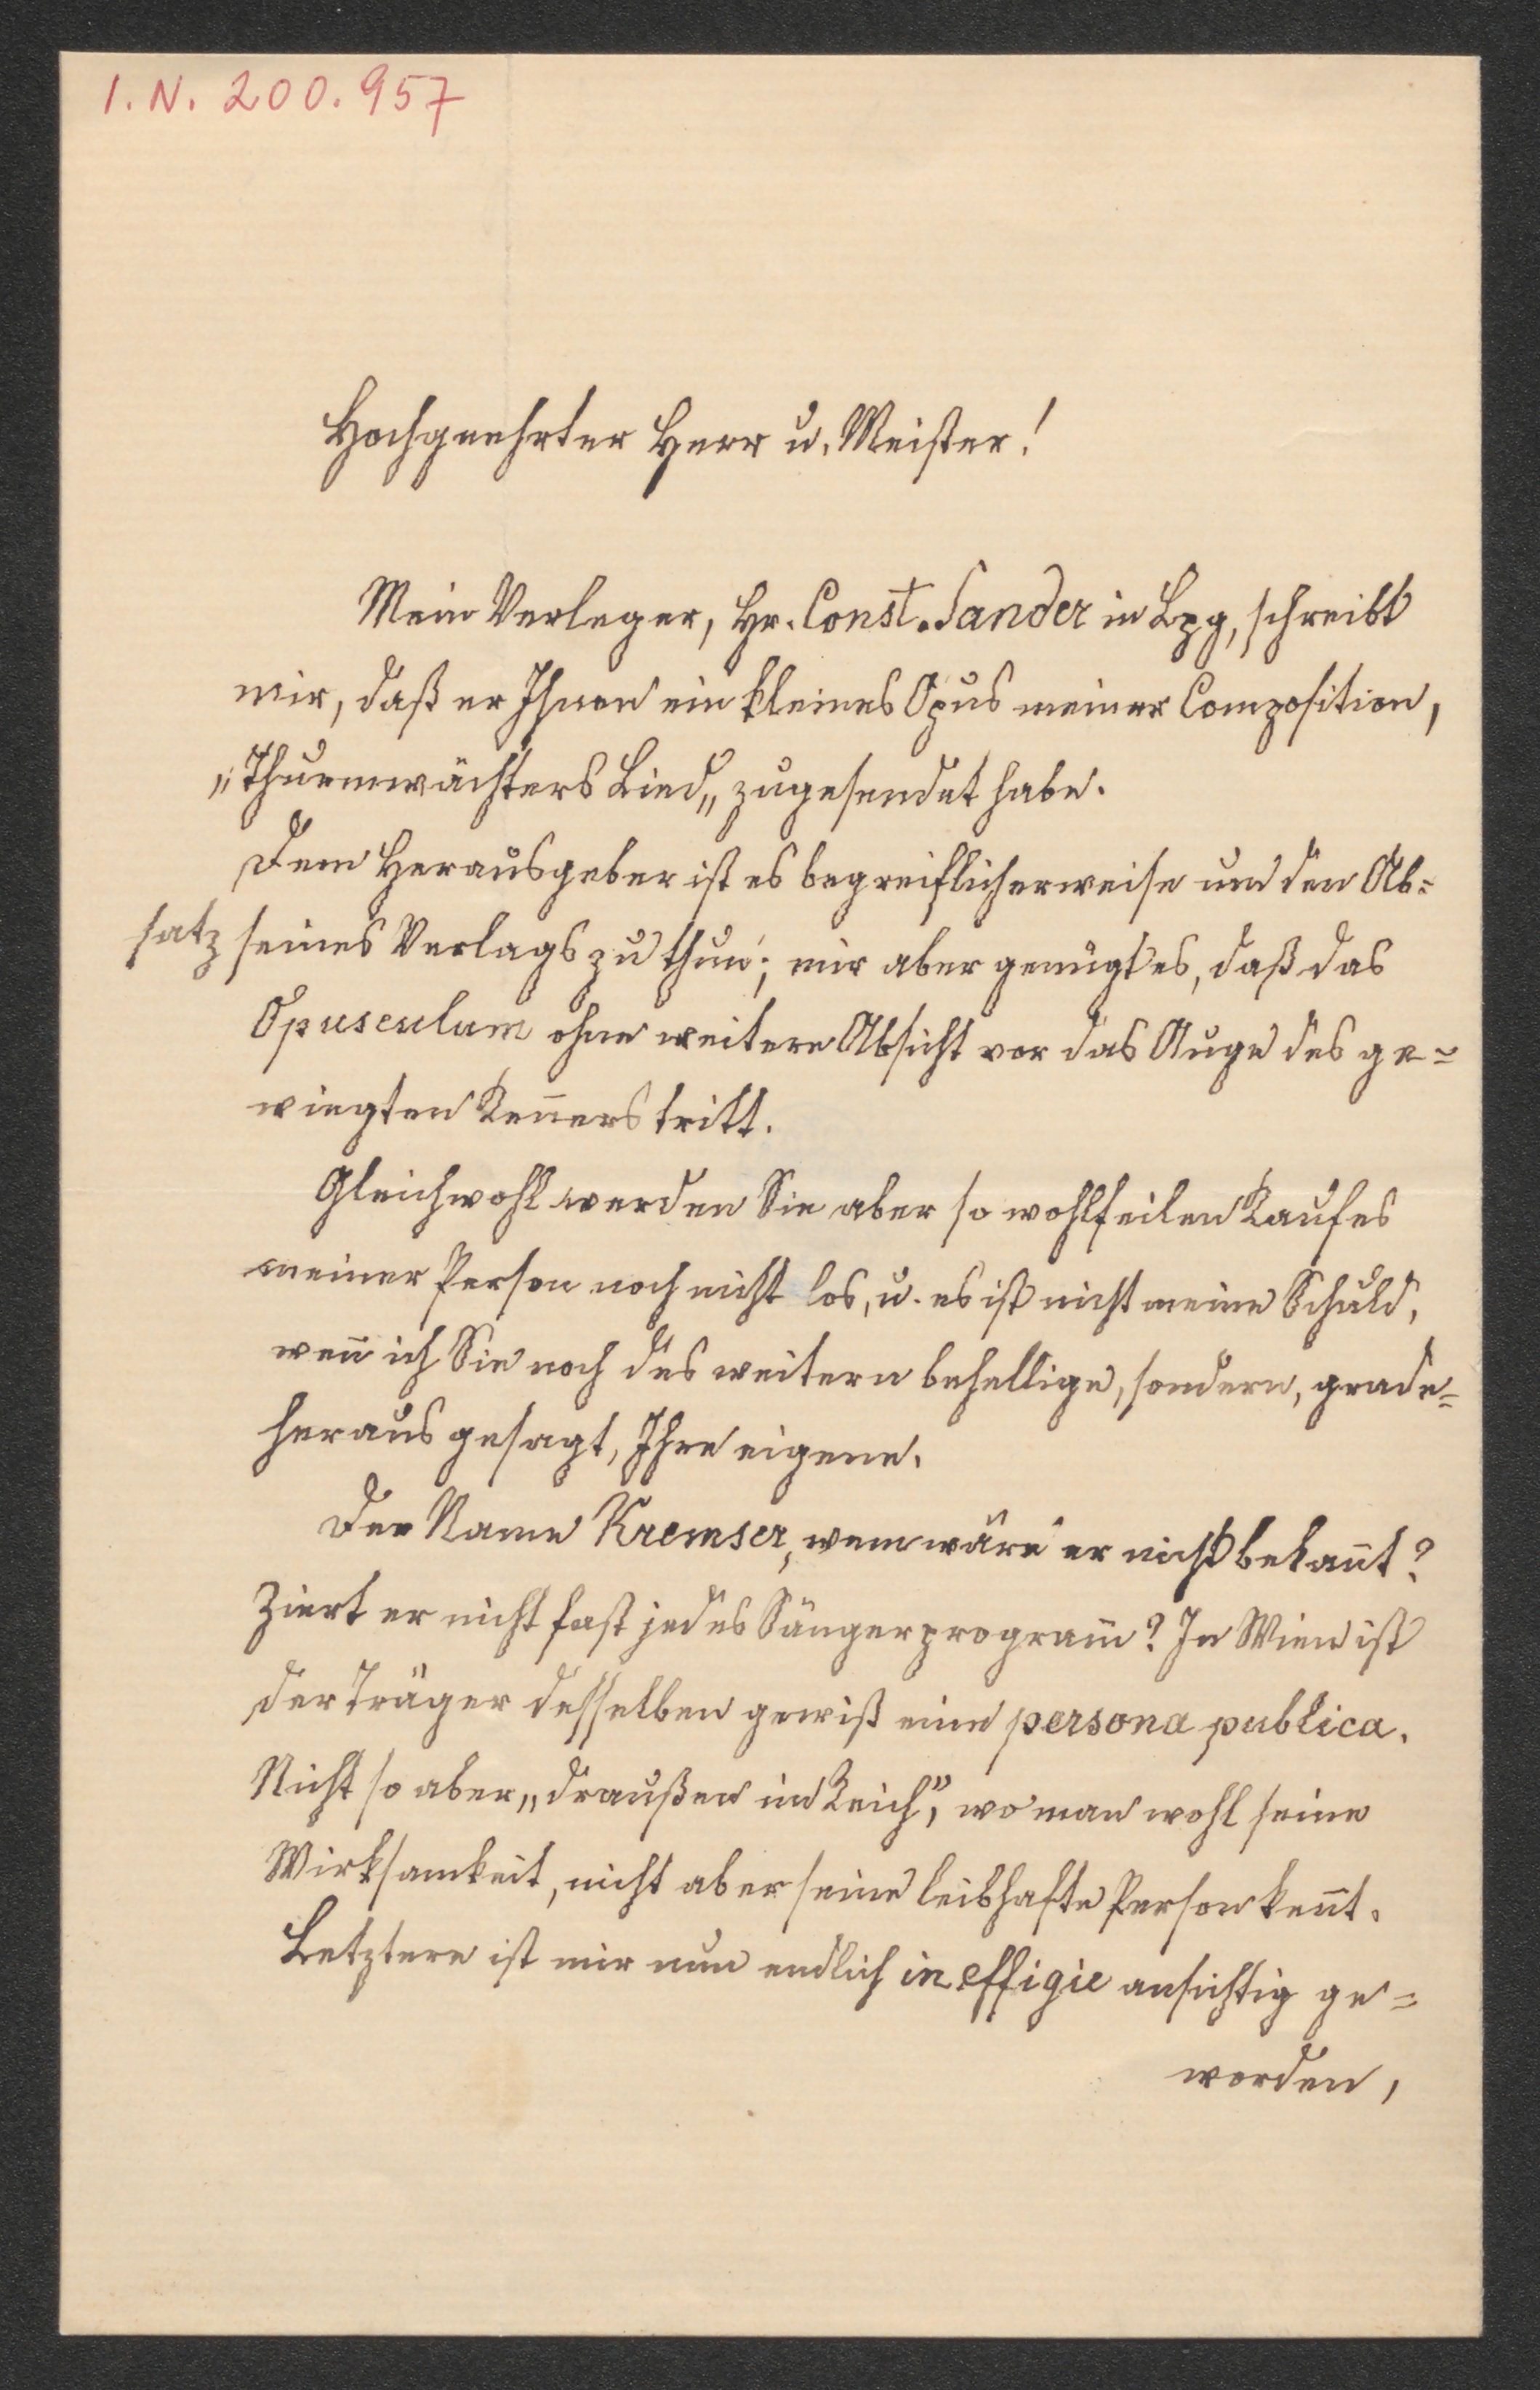 I. N. 200.957
Hochgeehrter Herr u. Meister!
Mein Verleger, Hr. Const. Sander in Lpg, schreibt
mir, daß er Ihnen ein kleines Opus meiner Composition,
„Thurmwächters Lied„ zugesendet habe.
Dem Herausgeber ist es begreiflicherweise um den Ab=
satz seines Verlags zu thun; mir aber genügt es, daß das
Opusculum ohne weitere Absicht vor das Auge des ge=
wiegten Keñers tritt.
Gleichwohl werden Sie aber so wohlfeilen Kaufes
meiner Person noch nicht los, u. es ist nicht meine Schuld,
weñ ich Sie noch des weitern behellige, sondern, grade=
heraus gesagt, Ihre eigene.
Der Name Kremser, wem wäre er nicht bekañt?
Ziert er nicht fast jedes Sängerprogram̄? In Wien ist
der Träger desselben gewiß eine persona publica.
Nicht so aber „draußen im Reich”, wo man wohl seine
Wirksamkeit, nicht aber seine leibhafte Person keñt.
Letztere ist mir nun endlich in effigie ansichtig ge=
worden,